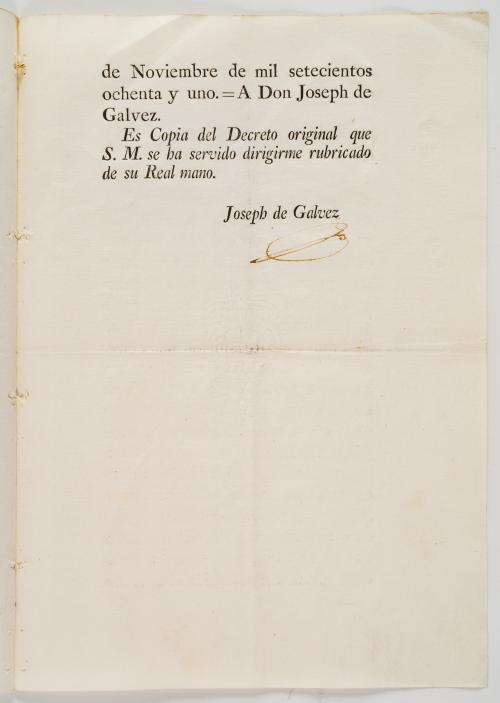 de Noviembre de mil setecientos
ochenta y uno.=A Don Joseph de
Galvez.
Es Copia del Decreto original que
S. M. se ha servido dirigirme rubricado
de su Real mano.
Joseph de Galvez